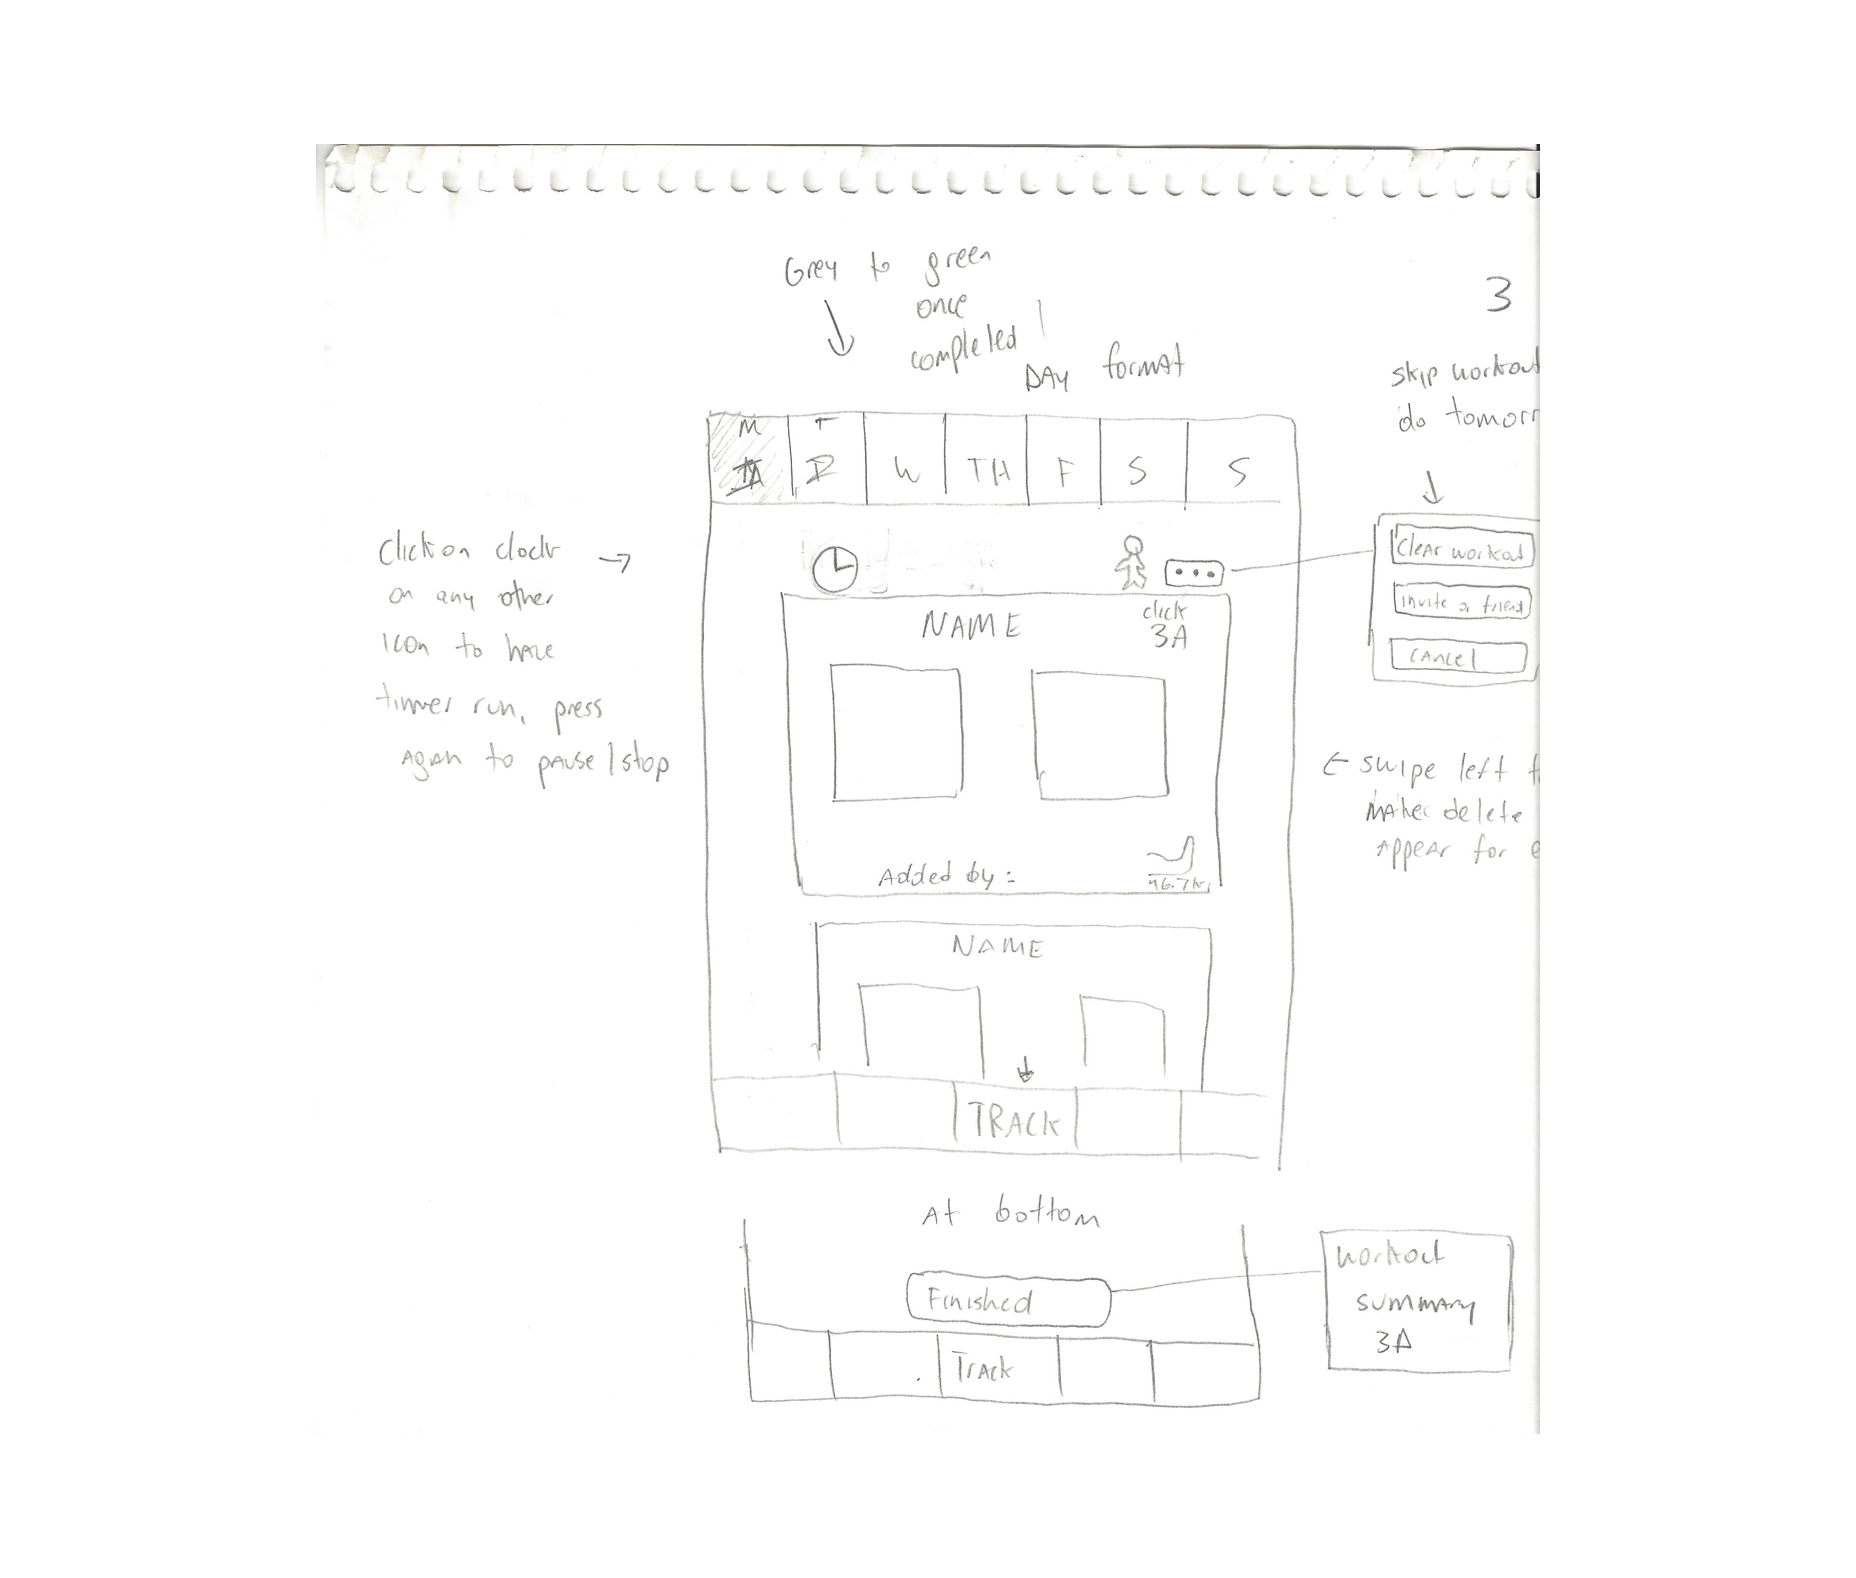 Grey to green
once
completed
DAY format
3
skip workout
do tomorr
M
T
W
TH
F
S
S
Click on clock
on any other
icon to have
timmer run, press
again to pause/stop
clear workout
invite a friend
cancel
NAME
click
3A
← swipe left t
makes delete
appear for e
Added by :
NAME
TRACK
At bottom
Finished
Track
workout
summary
3A